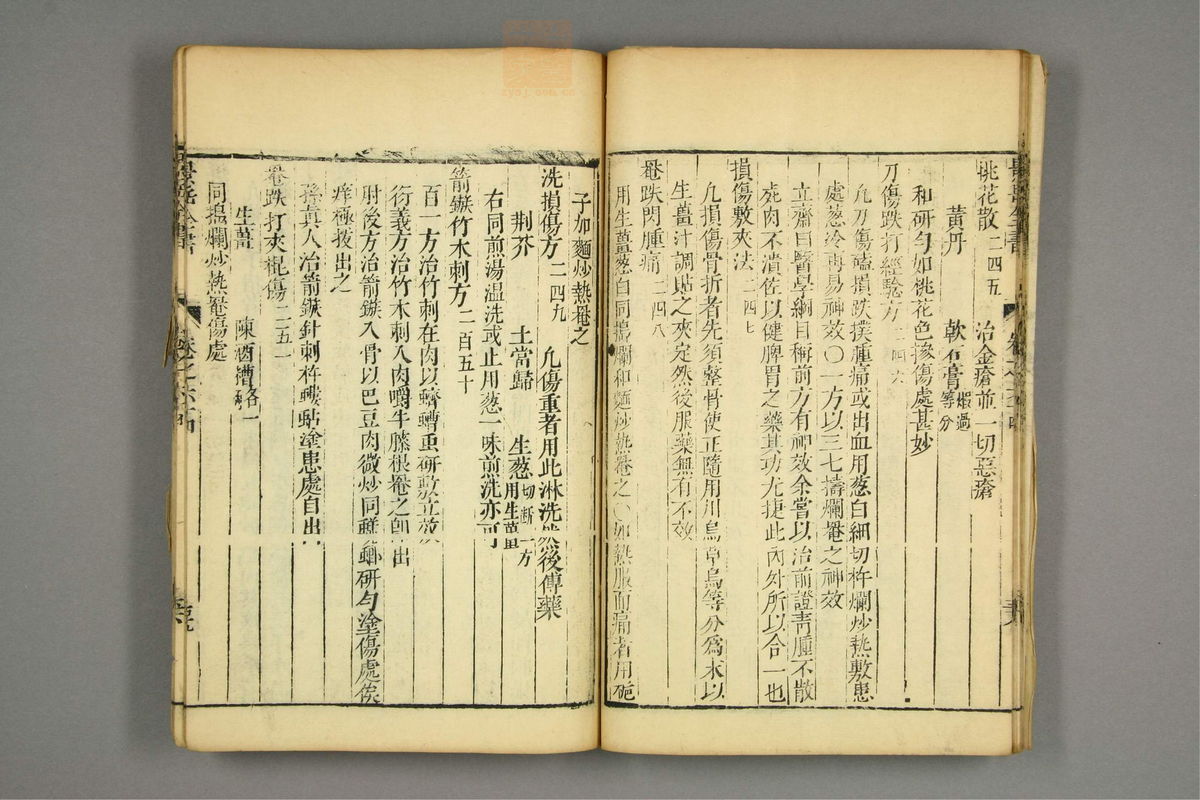 桃花散二四五 治金瘡並一切惡瘡
黃丹 軟石膏煆過等分
和研勻如桃花色摻傷處甚妙
刀傷跌打經驗方二四六
凡刃傷磕損跌撲腫痛或出血用葱白細切杵爛炒熱敷患
處葱冷再易神效〇一方以三七擣爛罨之神效
立齋曰醫學綱目稱前方有神效余嘗以治前證青腫不散
死肉不潰佐以健脾胃之藥其功尤捷此內外所以合一也
損傷敷夾法二四七
凡損傷骨折者先須整骨使正隨用川烏草烏等分爲末以
生薑汁調貼之夾定然後服藥無有不效
罨跌閃腫痛二四八
用生薑葱白同擣爛和麵炒熱罨之〇如熱服而痛者用硊
子加麵炒熱罨之
洗損傷方二四九 凡傷重者用此淋洗然後傅藥
荆芥 土當歸 生葱切斷一方用生薑
右同煎湯温洗或止用葱一味煎洗亦可
箭鏃竹木刺方二百五十
百一方治竹刺在肉以蠐螬虫研敷立效
衍義方治竹木刺入肉嚼牛膝根罨之卽出
肘後方治箭鏃入骨以巴豆肉微炒同蜣蜋研勻塗傷處俟
痒極拨出之
孫真人治箭鏃針刺杵螻蛄塗患處自出
罨跌打夾棍傷二五一
生薑 陳酒糟各一
同搗爛炒熱罨傷處
卷之六十四